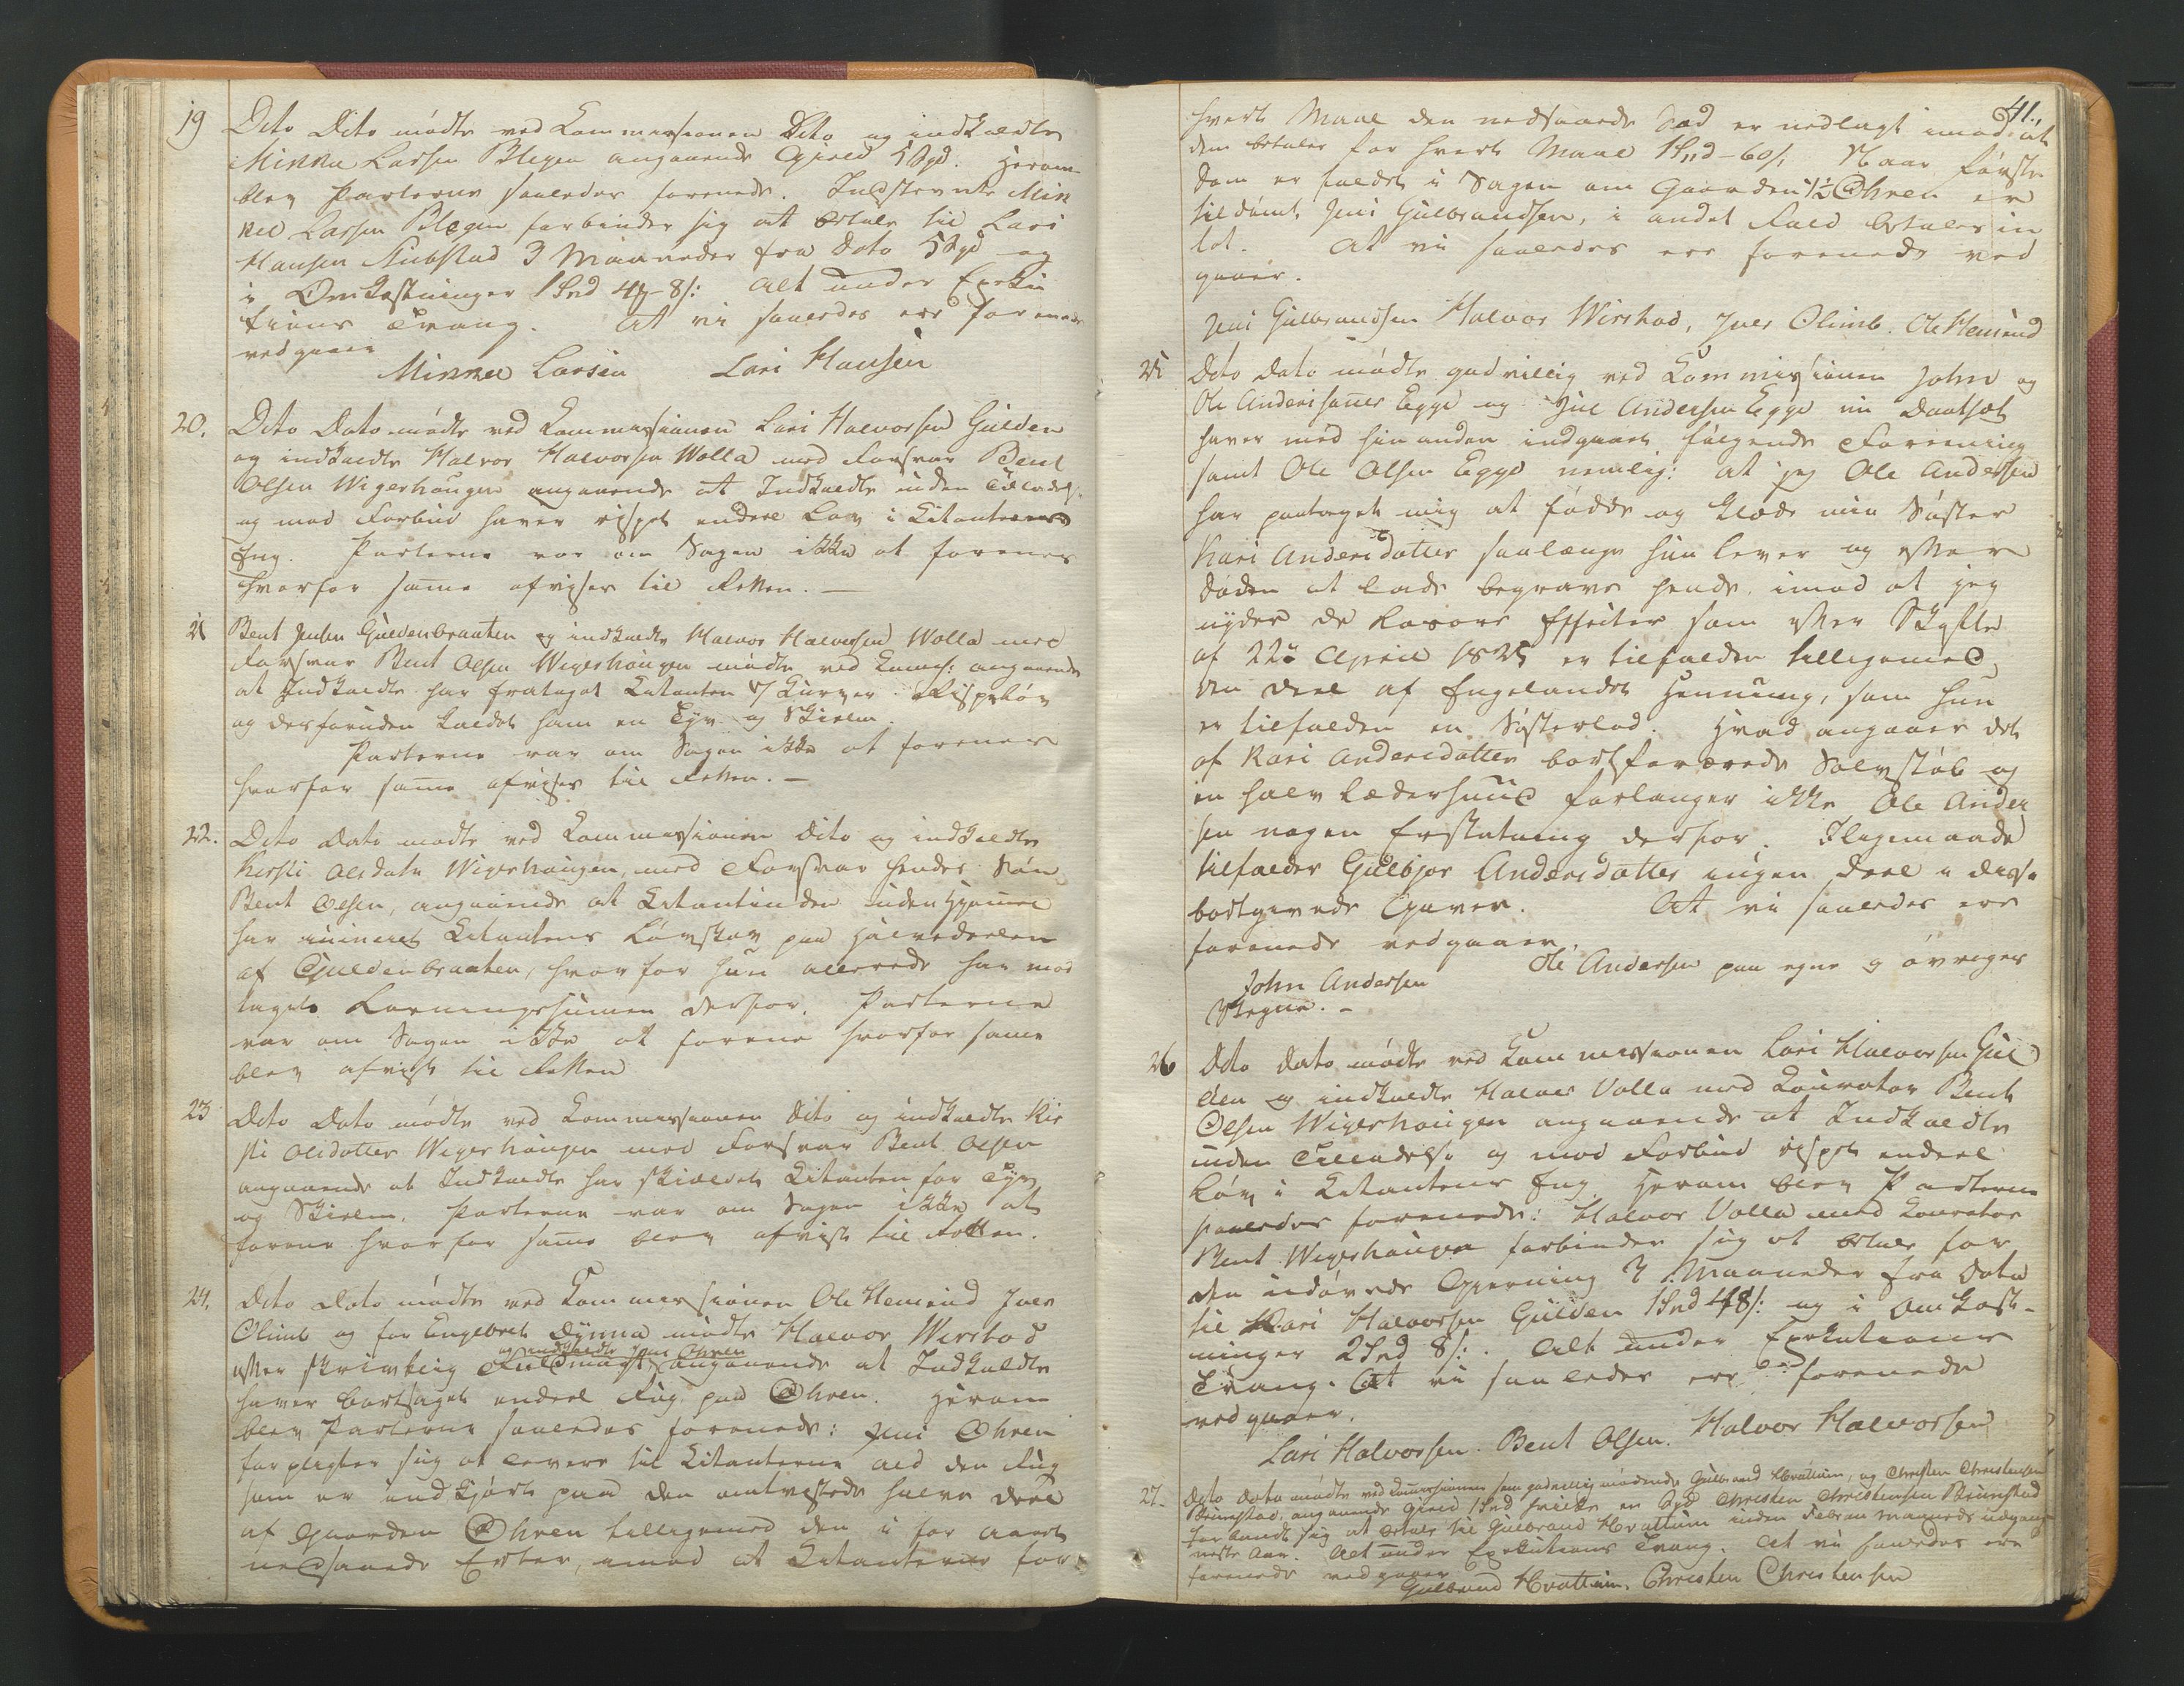 19 Dito Dito mødte ved Kommissionen Dito og indkaldte
Mikkel Larsen Blegen angaaende Gield 5 Spd. Herom
blev Parterne saaledes forenede. Indstevnte Mik
kel Larsen Blegen forbinder sig at betale til Lars
Hansen 3 Maaneder fra Dato 5 Spd og
i Omkostninger 1 Spd 4 - 8 s: alt under Exeku
tions Tvang. At vi saaledes ere forenede
vedgaaer
Mikkel Larsen Lars Hansen
20. Dito Dato mødte ved Kommissionen Lars Halvorsen Gulden
og indkaldte Halvor Halvorsen Wolla med Forsvar Bent
Olsen Wigerhaugen angaaende at Indkaldte uden Tilladelse
og mod Forbud haver rispet endeel Løv i Citantens
Eng. Parterne var om Sagen ikke at forenes
hvorfor same afvises til Retten. —
21 Bent Jensen Guldenbraaten og indkaldte Halvor Halvorsen Wolla med
Forsvar Bent Olsen Wigerhaugen mødte ved Komms: angaaende
at Indkaldte har frataget Citanten 7 Kurver Rispeløv
og desforuden kaldet ham en Tyv og Skielm.
Parterne var om Sagen ikke at forenes
hvorfor same afvises til Retten. —
22. Dito Dato mødte ved Kommissionen Dito og indkaldte
Kirsti Olsdatr Wigerhaugen, med Forsvar hendes Søn
Bent Olsen, angaaende at Citantinden uden Hjemmel
har ruineret Citantens Løvskov paa Halvedeelen
af Guldenbraaten, hvorfor hun allerede har mod
taget Løsningssummen derfor. Parterne
var om Sagen ikke at forene hvorfor same
blev afvist til Retten
23 Dito Dato mødte ved Kommissionen Dito og indkaldte Kir
sti Olsdatter Wigerhaugen med Forsvar Bent Olsen
angaaende at Indkaldte har skieldet Citanten for Tyv
og Skielm. Parterne var om Sagen ikke at
forene hvorfor same blev afvist til Retten.
24. Dito Dato mødte ved Kommissionen Ole Hemind Iver
Olimb og for Engebret Dynna mødte Halvor Wirstad
og indkaldte Jens Ohren
efter skrivtlig Fuldmagt, angaaende at Indkaldte
haver borttaget endeel Rug paa Ohren. Herom
blev Parterne saaledes forenede: Jens Ohren
forpligter sig at levere til Citanterne ald den Rug
som er indkjørt paa den omtvistede halve Deel
af Gaarden Ohren tilligemed den i for aaret
nedsaaede Erter, imod at Citanterne for
41.
hvert Maal den nedsaaede Sæd er nedlagt imod at
dem betales for hvert Maal 1 Spd - 60 s. Naar første
Dom er faldet i Sagen om Gaarden 1/2 Ohren er
tildømt Jens Gulbrandsen, i andet Fald betales in
tet. At vi saaledes ere forenede ved
gaaer.
Jens Gulbrandsen Halvor Wirstad, Iver Olimb. Ole Hemind
25 Dito Dato mødte godvillig ved Kommissionen John og
Ole Anderssøner Egge og Juel Andersen Egge
haver med hinanden indgaaet følgende Forening
samt Ole Olsen Egge nemlig: at jeg Ole Andersen
har paataget mig at føde og klæde min Søster
Kari Andersdatter saalænge hun lever og efter
Døden at lade begrave hende, imod at jeg
nyder de Løsøre Effecter som efter Skifte
af 22de April 1825 er tilfalden tilligemed
den Deel af Engelandet Henning, som hun
er tilfalden en Søsterlod. Hvad angaaer det
af Kari Andersdatter bortforærede Sølvstøb og
en halv Læderhuud forlanger ikke Ole Ander
sen nogen Erstatning derfor. Iligemaade
tilfalder Gulbjor Andersdatter ingen Deel i disse
bortgivede Gaver. At vi saaledes ere
forenede vedgaaer.
John Andersen Ole Andersen paa egne og øvriges
Vegne. -
26 Dito Dato mødte ved Kommissionen Lars Halvorsen Gul
den og indkaldte Halvor Volla med Kurator Bent
Olsen Wigerhaugen angaaende at Indkaldte
uden Tilladelse og mod Forbud rispet endeel
Løv i Citantens Eng. Herom blev Parterne
saaledes forenede: Halvor Volla med Kurator
Bent Wigerhaugen forbinder sig at betale for
den udøvede Gjerning 3 Maaneder fra Dato
til Lars Halvorsen Gulden 1 Spd 48 s: og i Omkost-
ninger 2 Spd 8 s:. Alt under Exekutions
Tvang. At vi saaledes ere forenede
vedgaaer.
Lars Halvorsen. Bent Olsen. Halvor Halvorsen
27. Dito Dato mødte ved Kommissionen som godvillig mødende Gulbrand Hvattum, og Christen Christensen
Brunstad, angaaende Gield 1 Spd hvilke en Spd Christen Christensen Brunstad
forbandt sig at betale til Gulbrand Hvattum inden Februar Maaneds udgang
neste Aar. Alt under Exekutions Tvang. At vi saaledes ere
forenede vedgaaer
Gulbrand Hvattum. Christen Christensen